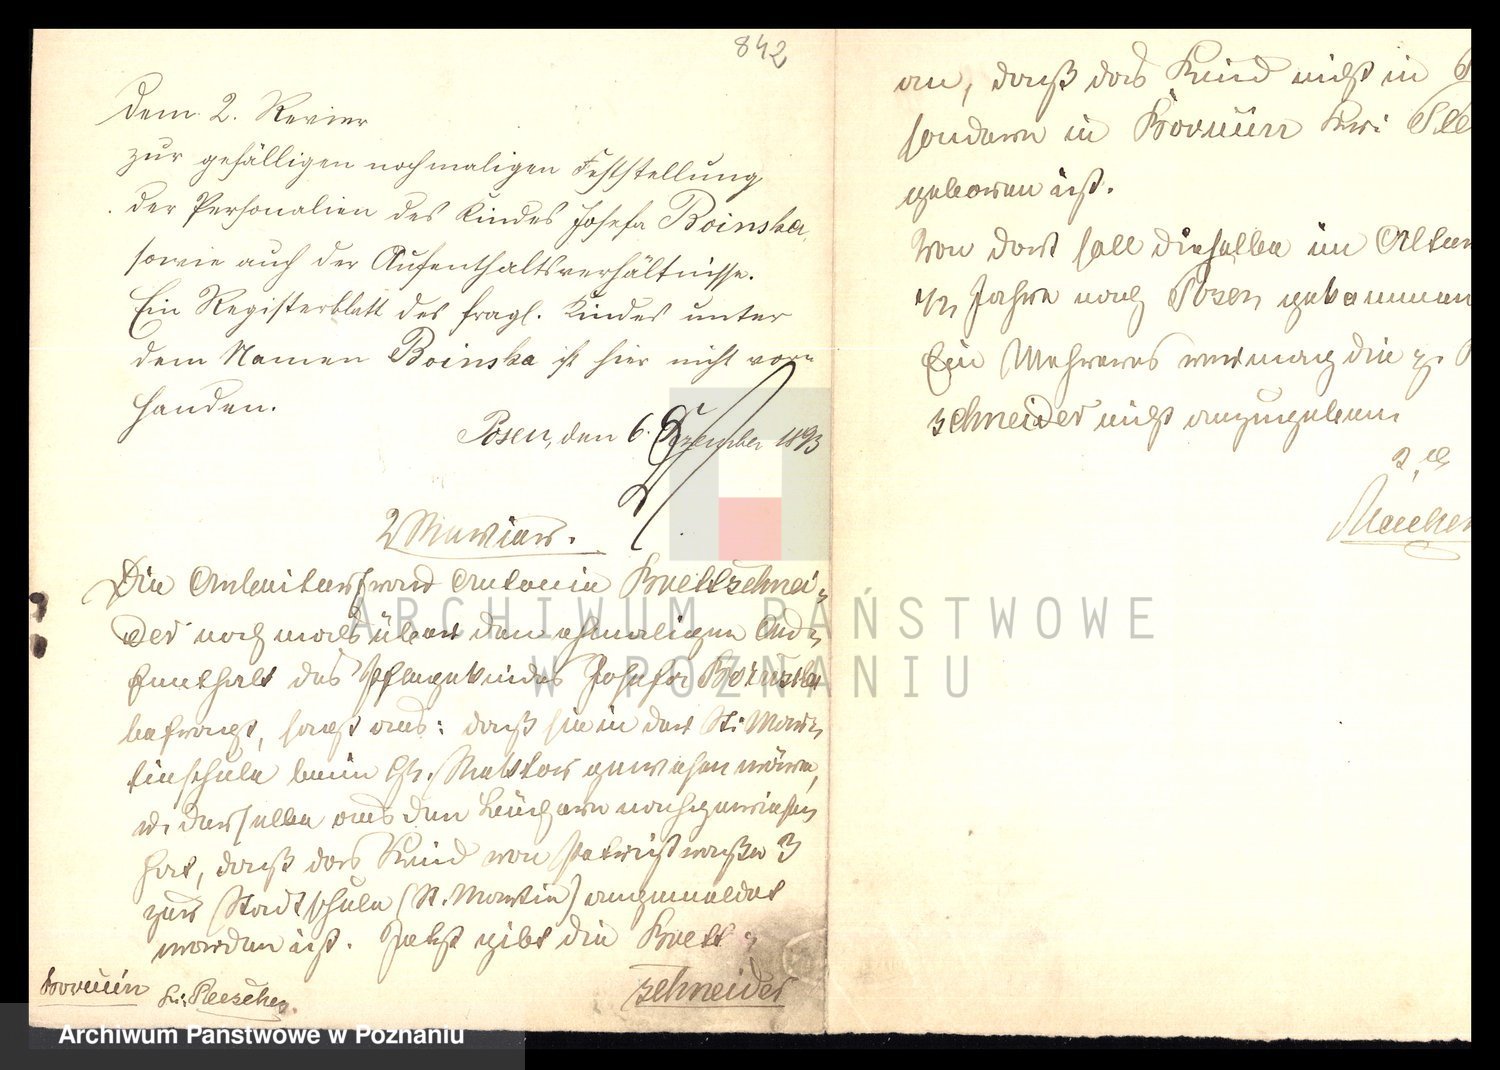 842
Dem 2. Revier
zur gefälligen nochmaligen Feststellung
der Personalien des Kindes Josefa Boinska,
sowie auch der Aufenthaltsverhältnisse.
Ein Registerblatt des fragl. Kindes unter
dem Namen Boinska ist hier nicht vor=
handen.
Posen, den 6. Dezember 1893
2 Revier.
Die Arbeiterfrau Antonie Brettschnei=
der nochmals über den ehmaligen
des Pflegekindes Josefa
befragt, sagt aus: daß sie in der St. Mar=
tinschule beim H. Rektor gewesen wäre,
u. derselbe aus den Büchern nachgewiesen
hat, daß das Kind von 3
zur Stadtschule (St. Martin) angemeldet
worden ist. Jetzt gibt die Brett=
schneider
Bei Pleschen.
an, daß das Kind nicht in
sondern in Kr:
geboren ist.
Von dort soll dieselbe im Alter
1/2 Jahre nach Posen gekommen
Ein Mehreres vermag die p.
schneider nicht anzugeben.
ARCHIWUM PAŃSTWOWE
W POZNANIU
Archiwum Państwowe w Poznaniu